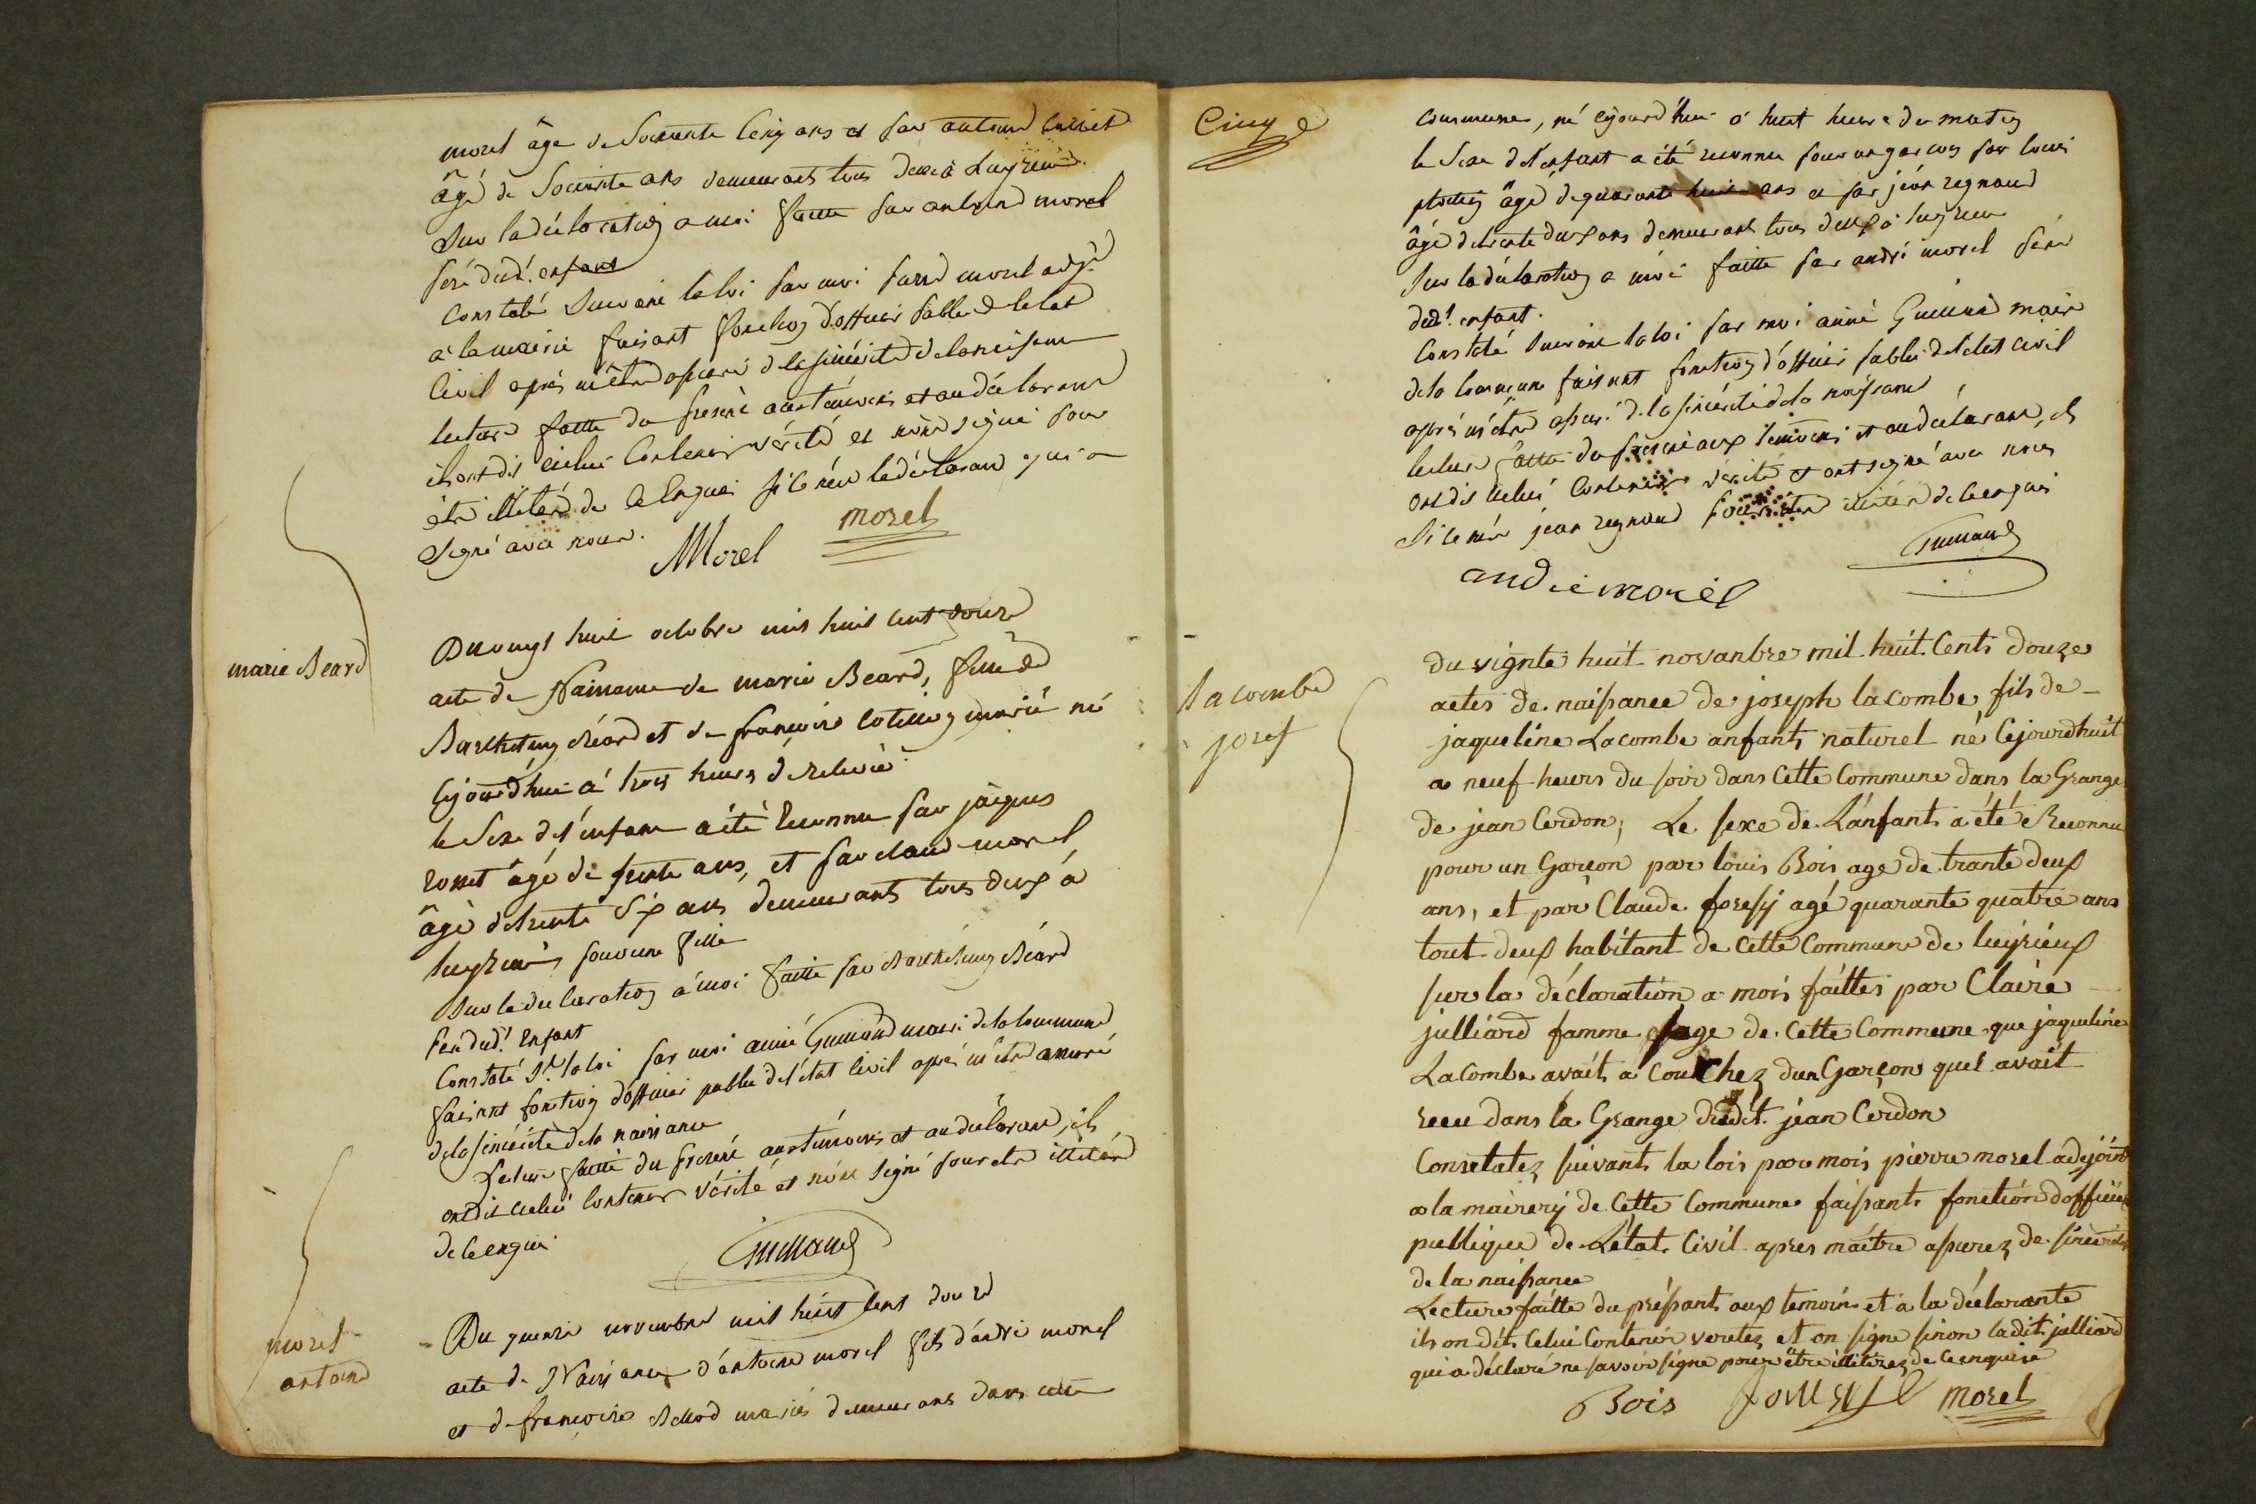 morel âgé de Soixante Cinq ans et par antoine
âgé de Soixante ans demeurants tous deux à Luyrieu
Sur la déclaration a moi faitte par antoine morel
père dud.t enfant
Constaté Suivant la loi par moi pierre morel adj.t
à la mairie faisant fonction d'officier public de letat
Civil après m'être assuré de la sincérité de la naissance
lecture faitte du present aux témoins et au déclarant
ils ont dit icelui Contenir vérité et n'ont signé pour
être illitéré de Ce Enquis si ce n'est le déclarant qui a
Signé avec nous.
Morel morel
marie Beard
Du vingt huit octobre mil huit cent douze
acte de Naissance de marie Beard, fille de
Barthelemy Béard et de françoise mariés né
Cejourd'hui à trois heures de relevée
le Sexe de l'enfant a été reconnu par jacques
rosset âgé de trente ans, et par claude morel
âgé de trente Six ans demeurants tous deux à
luyrieu, pour une fille
Sur la déclaration à moi faitte par Barthélemy Béard
Père dud.t Enfant
Constaté S.t la loi par moi aimé Guillaud maire de la Commune
faisant fonction d'officier public de l'état Civil après m'être assuré
de la sincérité de la naissance
Lecture faitte du présent aux témoins et au déclarant, ils
ont dit icelui Contenir vérité et n'ont signé pour etre illitéré
de Ce enquis
Guillaud
morel
antoine
Du quinze novembre mil huit Cent douze
acte de Naissance d'antoine morel fils d'andré morel
et de françoise Bellod mariés demeurans dans cette
Cinq
Commune, né cejourd'hui à huit heure du matin
le Sexe de l'enfant a été reconnu pour un garcon par louis
âgé de quarante huit ans et par jean regnaud
âgé de trente deux ans demeurant tous deux à luyrieu
Sur la déclaration a moi faitte par andré morel père
dud.t enfant.
Constaté Suivant la loi par moi aimé Guillaud maire
de la Commune faisant fonction d'officier public de l'etat Civil
après m'être assuré de la sincérité de la naissance
lecture faitte du present aux témoins et au déclarant, ils
ont dit icelui Contenir vérité et ont signé avec nous
Si ce n'est jean regnaud pour être illitéré de Ce enquis
Guillaud
andré morel
Lacombe
josef
du vignte huit novanbre mil huit Cents douze
actes de naissance de joseph lacombe fils de
jaqueline Lacombe anfants naturel né Cejourdhuit
a neuf heurs du soir dans Cette Commune dans la Grange
de jean Cerdon, Le sexe de L'anfants a été Reconnu
pour un Garçon par louis Bois age de trante deux
ans, et par Claude foresy agé quarante quatre ans
tout deux habitant de Cette Commune de luyrieux
sur la déclaration a mois faittes par Claire
julliard famme sage de Cette Commune que jaqueline
LaCombe avait a Couchez dun Garçon quel avait
recu dans la Grange dudit jean Cerdon
Consetatez suivants la lois par mois pierre morel adejoint
a la mairery de Cette Commune faissants fonction dofficier
publique de L'état Civil apres maître assurez de sincerité
de la naissance
Lecture faitte du préssant aux temoins et a la déclarante
ils on dit Celui Contenir veretez et on signe sinon ladit julliard
qui a déclaré ne savoir signe pour être illiterez de Ce enquise
Bois morel